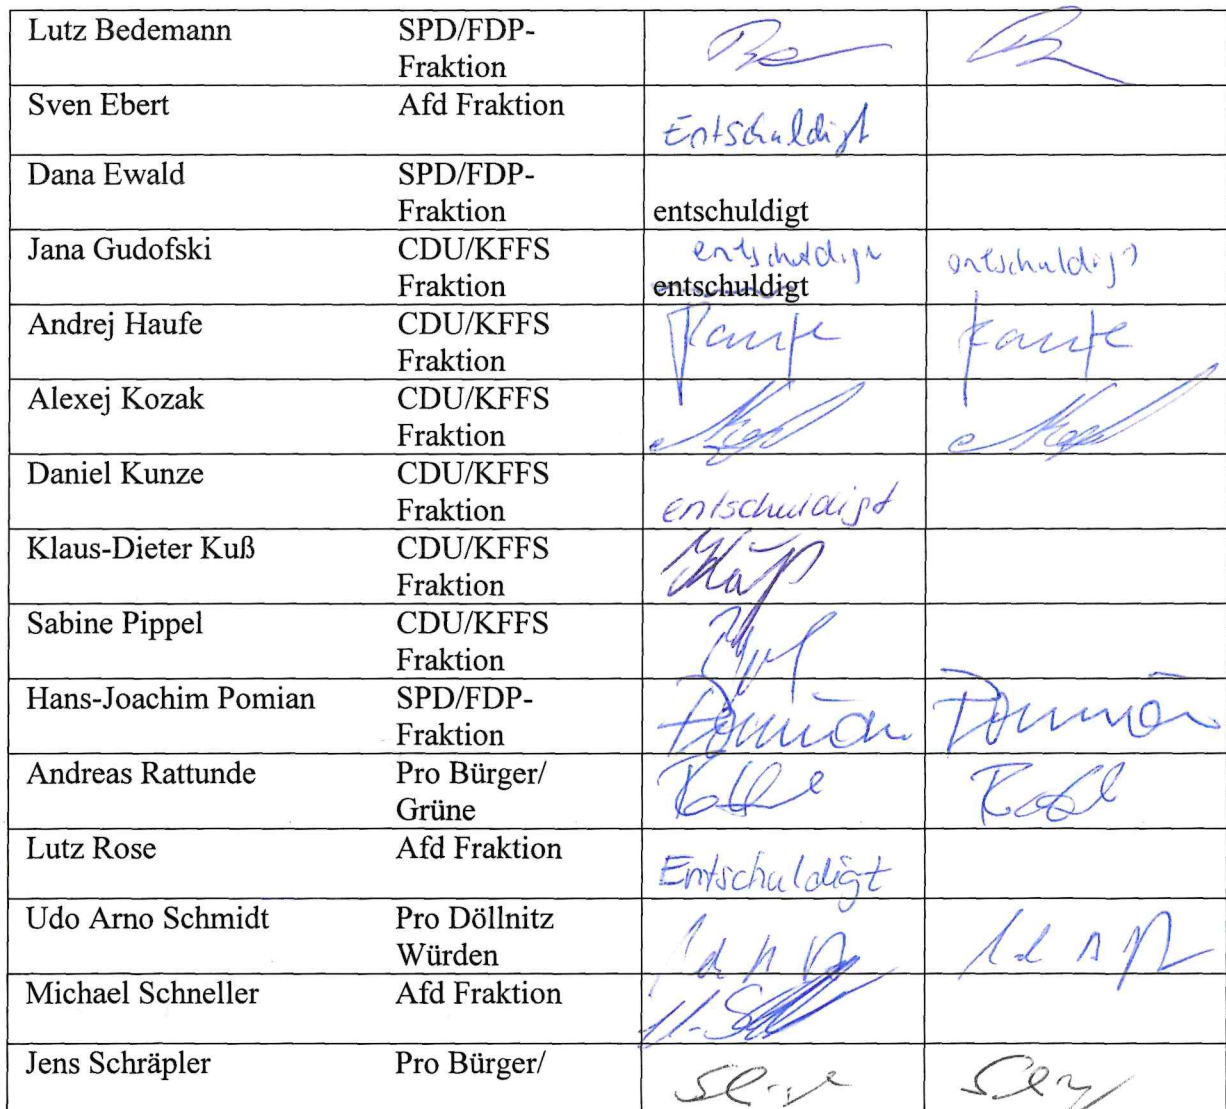 Lutz Bedemann SPD/FDP-
Fraktion
Sven Ebert Afd Fraktion
Entschuldigt
Dana Ewald SPD/FDP-
Fraktion entschuldigt
Jana Gudofski CDU/KFFS entschuldigt entschuldigt
Fraktion entschuldigt
Andrej Haufe CDU/KFFS Haufe Haufe
Fraktion
Alexej Kozak CDU/KFFS
Fraktion
Daniel Kunze CDU/KFFS
Fraktion entschuldigt
Klaus-Dieter Kuß CDU/KFFS Kuß
Fraktion
Sabine Pippel CDU/KFFS
Fraktion
Hans-Joachim Pomian SPD/FDP- Pomian Pomian
Fraktion
Andreas Rattunde Pro Bürger/
Grüne
Lutz Rose Afd Fraktion
Entschuldigt
Udo Arno Schmidt Pro Döllnitz
Würden
Michael Schneller Afd Fraktion
Jens Schräpler Pro Bürger/